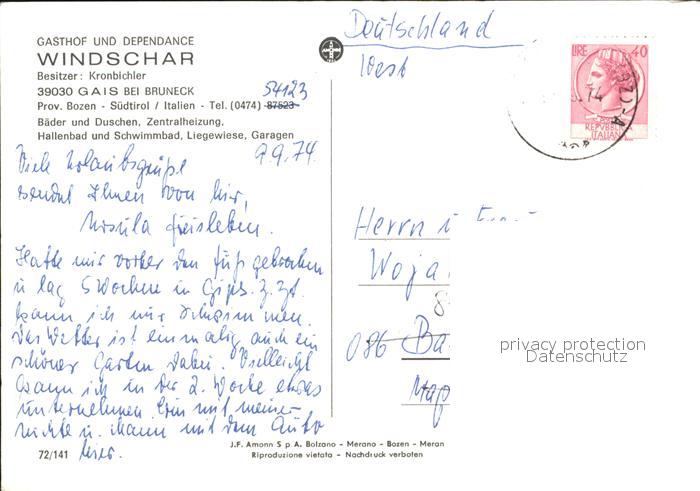 GASTHOF UND DEPENDANCE
WINDSCHAR
Besitzer: Kronbichler
39030 GAIS BEI BRUNECK
54123
Prov. Bozen - Südtirol / Italien - Tel. (0474) 87523
Bäder und Duschen, Zentralheizung,
Hallenbad und Schwimmbad, Liegewiese, Garagen
9.9.74.
Viele Urlaubsgrüße
sendet Ihnen von hier,
Ursula Freisleben.
Hatte mir vorher den Fuß gebrochen
u lag 5 Wochen in Gips. Z. Zt.
kann ich nur schwimmen.
Das Wetter ist einmalig auch ein
schöner Garten dabei. Vielleicht
kann ich in der 2. Woche etwas
unternehmen. Bin mit meiner
Nichte u. Mann mit dem Auto
hier.
72/141
J.F. Amonn S.p.A. Bolzano - Merano - Bozen - Meran
Riproduzione vietata - Nachdruck verboten
Deutschland
West
LIRE 40
REPVBBLICA
ITALIANA
Herrn u
Woja
086 Ba
privacy protection
Datenschutz